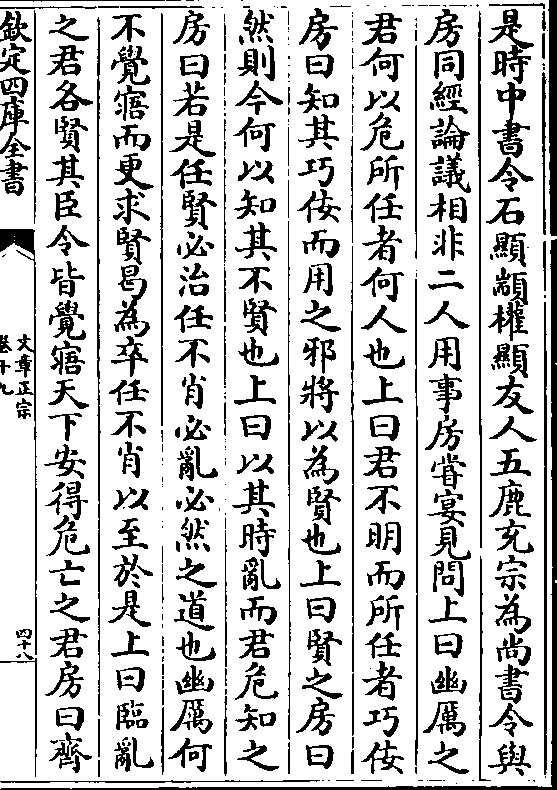 是時中書令石顯顓權顯友人五鹿充宗為尚書令與
房同經論議相非二人用事房嘗宴見問上曰幽厲之
君何以危所任者何人也上曰君不明而所任者巧佞
房曰知其巧佞而用之邪將以為賢也上曰賢之房曰
然則今何以知其不賢也上曰以其時亂而君危知之
房曰若是任賢必治任不肖必亂必然之道也幽厲何
不覺寤而更求賢曷為卒任不肖以至於是上曰臨亂
之君各賢其臣令皆覺寤天下安得危亡之君房曰齊
欽定四庫全書
文章正宗
卷十九
四十八